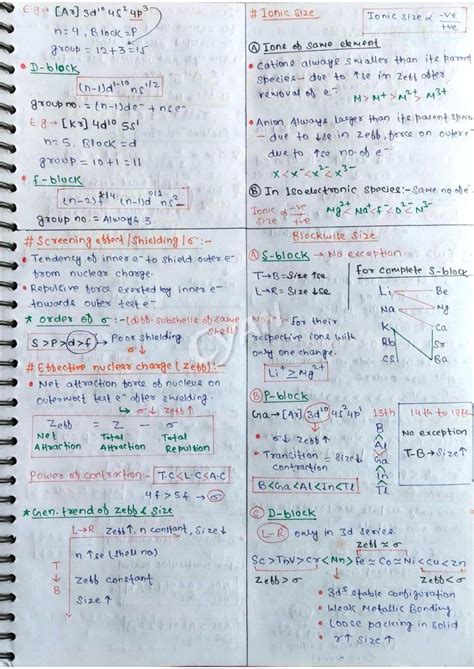 E.g:→ [Ar] 3d¹⁰ 4s² 4p³
n = 4, Block = P
group = 12+3 = 15
• D-block
(n-1)d¹⁻¹⁰ ns¹/²
group no. = (n-1)de⁻ + nse⁻
E.g→ [Kr] 4d¹⁰ 5s¹
n = 5, Block = d
group = 10+1 = 11
• f-block
(n-2)f¹⁻¹⁴ (n-1)d⁰/¹ ns²
group no. = Always 3.
# Screening effect / Shielding / σ :-
• Tendency of inner e⁻ to shield outer e⁻
from nuclear charge.
• Repulsive force exerted by inner e⁻
towards outer test e⁻
* order of σ :- (diff. subshells of same
shell)
S > P > d > f → Poor shielding
σ↓
# Effective nuclear charge (Zeff) :-
• Net attraction force of nucleus on
outermost test e⁻ after shielding.
σ↓ Zeff↑
Zeff = Z - σ
Net Total Total
Attraction Attraction Repulsion
Power of contraction:- T.C < L.C < A.C
4f > 5f → σ
* Gen. trend of Zeff & Size
L→R Zeff↑, n constant, Size↓
n↑se (shell no)
T
↓ Zeff constant
B
Size↑
# Ionic Size
Ionic size ∝ -ve/+ve
Ⓐ Ions of same element
• Cations always smaller than its parent
species - due to ↑se in Zeff after
removal of e⁻
M > M⁺ > M²⁺ > M³⁺
• Anion Always larger than its parent
- due to ↓se in Zeff, force on outer e⁻
due to ↑se no. of e⁻
X < X⁻ < X²⁻ < X³⁻
Ⓑ In Isoelectronic Species:- Same no. of e⁻
Ionic ∝ -ve/+ve Mg²⁺ < Na⁺ < F⁻ < O²⁻ < N³⁻
Blockwise Size
Ⓐ S-block → No exception
T→B = Size ↑se
L→R = Size ↓se
for their
respective ions with
only one change.
Li⁺ > Mg²⁺
For complete S-block
Li Be
Na Mg
K Ca
Rb Sr
Cs Ba
Ⓑ P-block
Ga → [Ar] 3d¹⁰ 4s² 4p¹
• σ↓ Zeff↑
• Transition = Size↓
contraction
B < Ga < Al < In < Tl
13th
B
Al
Ga
In
Tl
14th to 18th
No exception
T-B → Size↑
Ⓒ D-block
L-R only in 3d series.
Zeff ≈ σ
Sc > Ti > V > Cr < Mn > Fe ≃ Co ≃ Ni < Cu < Zn
Zeff > σ Zeff < σ
• 3d⁵ stable configuration
• Weak Metallic Bonding
• Loose packing in solid
• r↑ Size↑